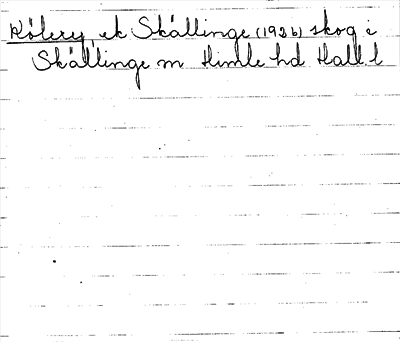 Kölery, ek Skällinge (1926) skog i
Skällinge m Himle hd Hall. l